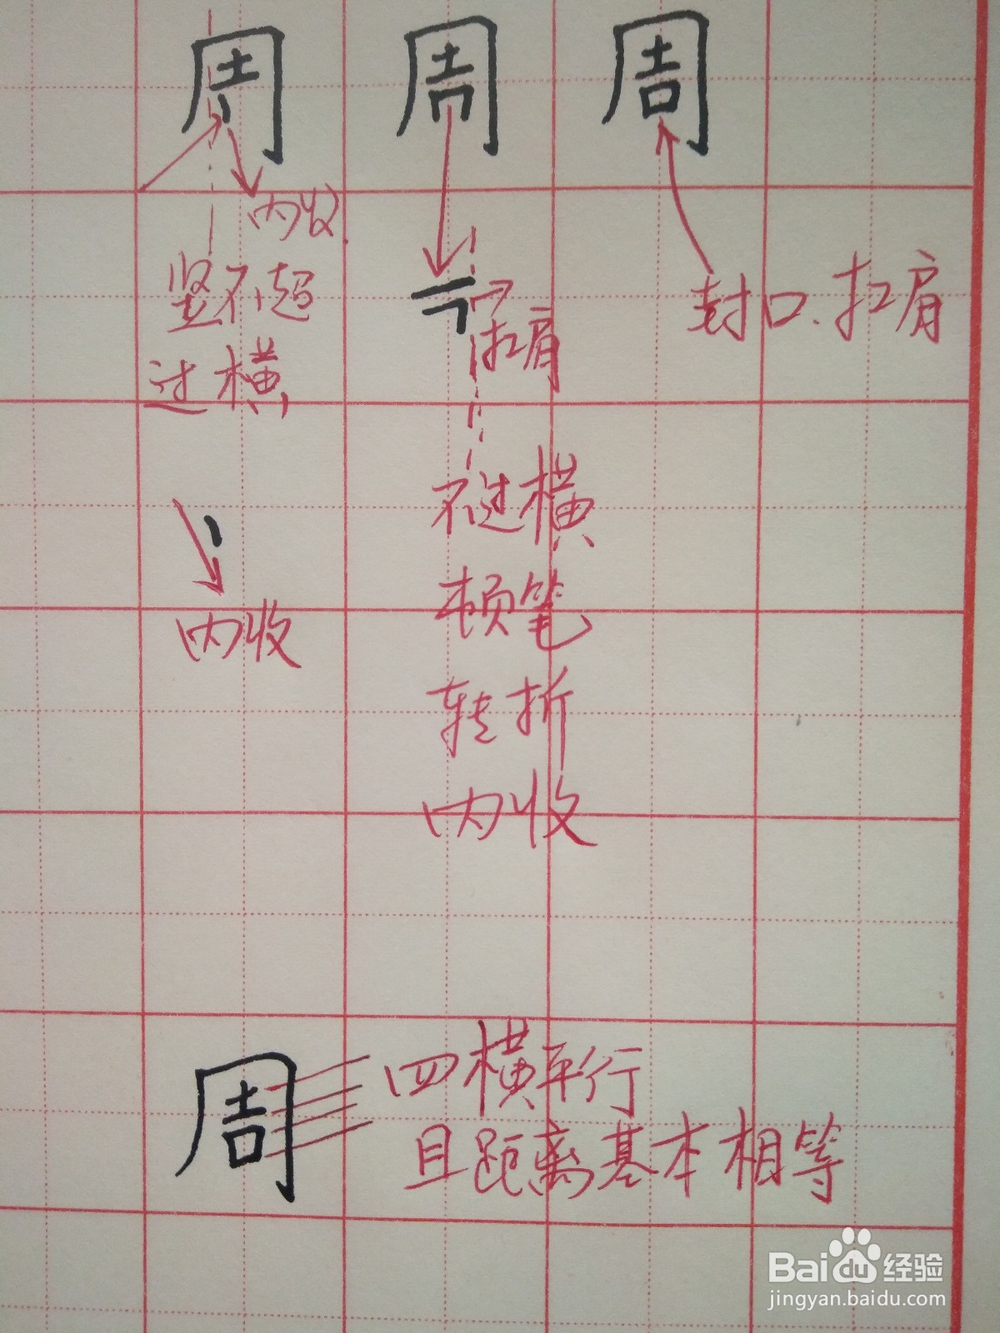 周 周 周
内收
竖不超
过横
扣肩
封口.扣肩
内收
不过横
顿笔
转折
内收
周
四横平行
且距离基本相等
Baidu经验
jingyan.baidu.com